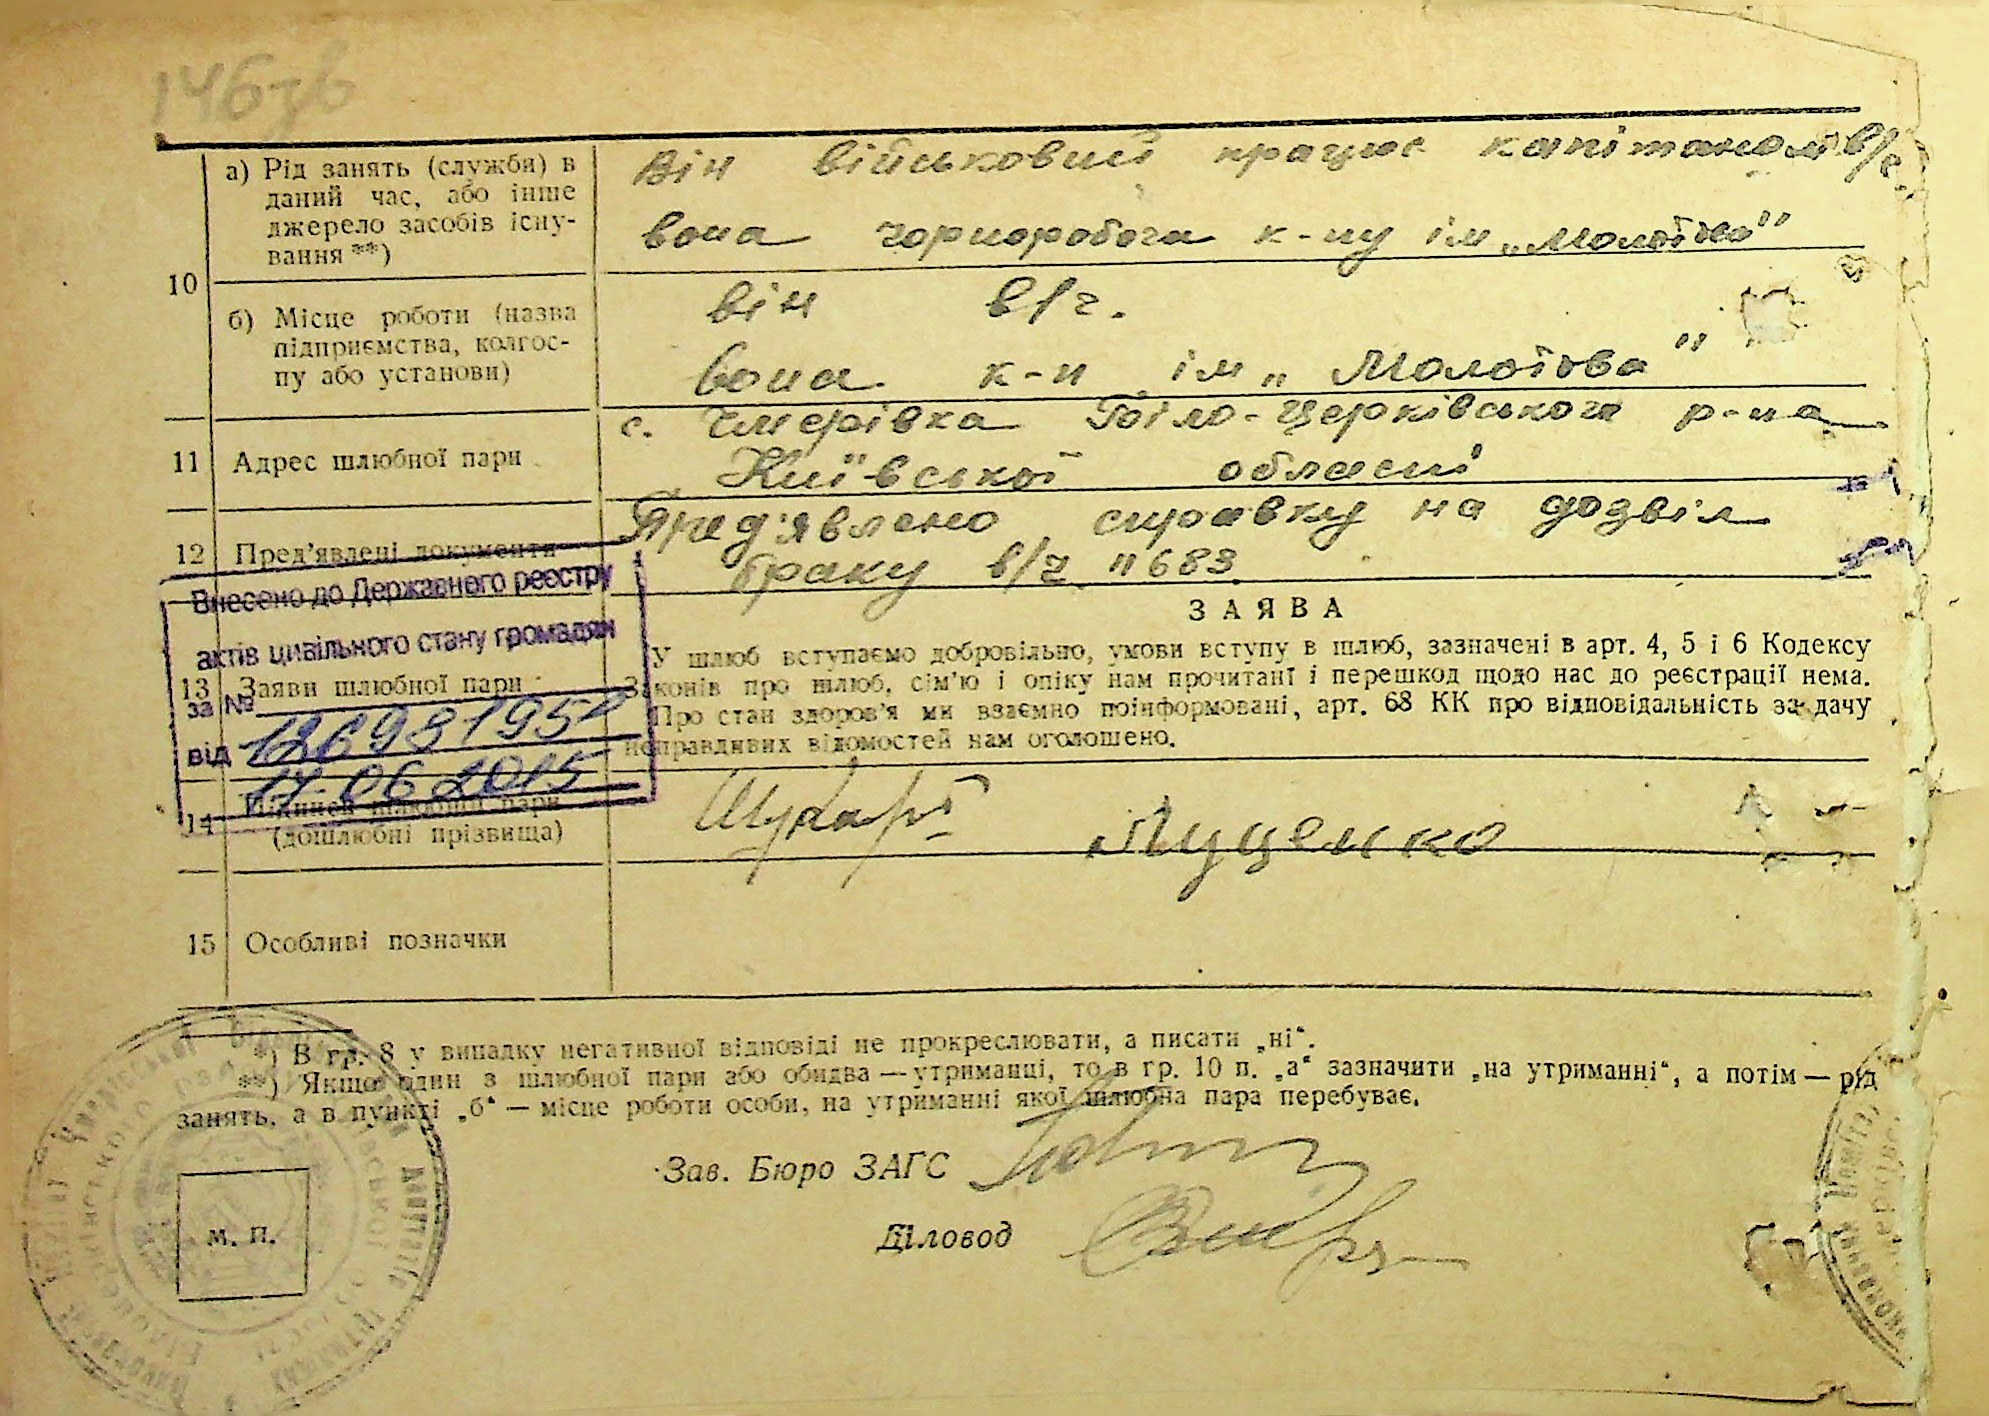 146зв
10
а) Рід занять (служби) в
даний час, або інше
джерело засобів існу-
вання **)
Він військовий працює капітаном в/с.
вона чорноробоча к-пу ім „Молотова"
б) Місце роботи (назва
підприємства, колгос-
пу або установи)
він в/ч.
вона к-п ім „Молотова"
11 Адрес шлюбної пари
с. Чмерівка Біло-Церківського р-на
Київської області
12 Пред'явлені документи
Пред'явлено справку на дозвіл
браку в/ч "683
Внесено до Державного реєстру
актів цивільного стану громадян
за №
від
17.06.2015
13 Заяви шлюбної пари
ЗАЯВА
У шлюб вступаємо добровільно, умови вступу в шлюб, зазначені в арт. 4, 5 і 6 Кодексу
Законів про шлюб, сім'ю і опіку нам прочитані і перешкод щодо нас до реєстрації нема.
Про стан здоров'я ми взаємно поінформовані, арт. 68 КК про відповідальність за дачу
неправдивих відомостей нам оголошено.
14 Підписи шлюбної пари
(дошлюбні прізвища)
Луценко
15 Особливі позначки
*) В гр. 8 у випадку негативної відповіді не прокреслювати, а писати „ні".
**) Якщо один з шлюбної пари або обидва — утриманці, то в гр. 10 п. „а" зазначити „на утриманні", а потім — рід
занять, а в пункті „б" — місце роботи особи, на утриманні якої шлюбна пара перебуває.
Зав. Бюро ЗАГС
Діловод
М. П.